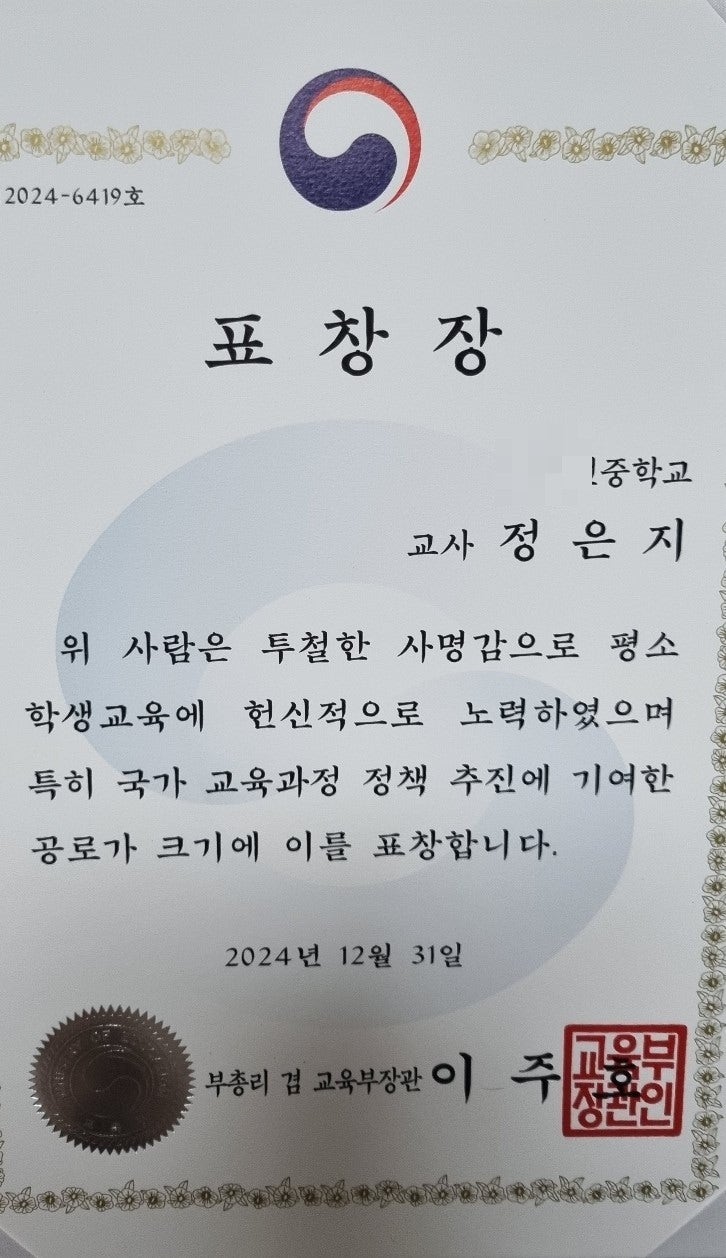 2024-6419호
표 창 장
중학교
교사 정 은 지
위 사람은 투철한 사명감으로 평소
학생교육에 헌신적으로 노력하였으며
특히 국가 교육과정 정책 추진에 기여한
공로가 크기에 이를 표창합니다.
2024년 12월 31일
부총리 겸 교육부장관 이 주 호
교육부
장관인